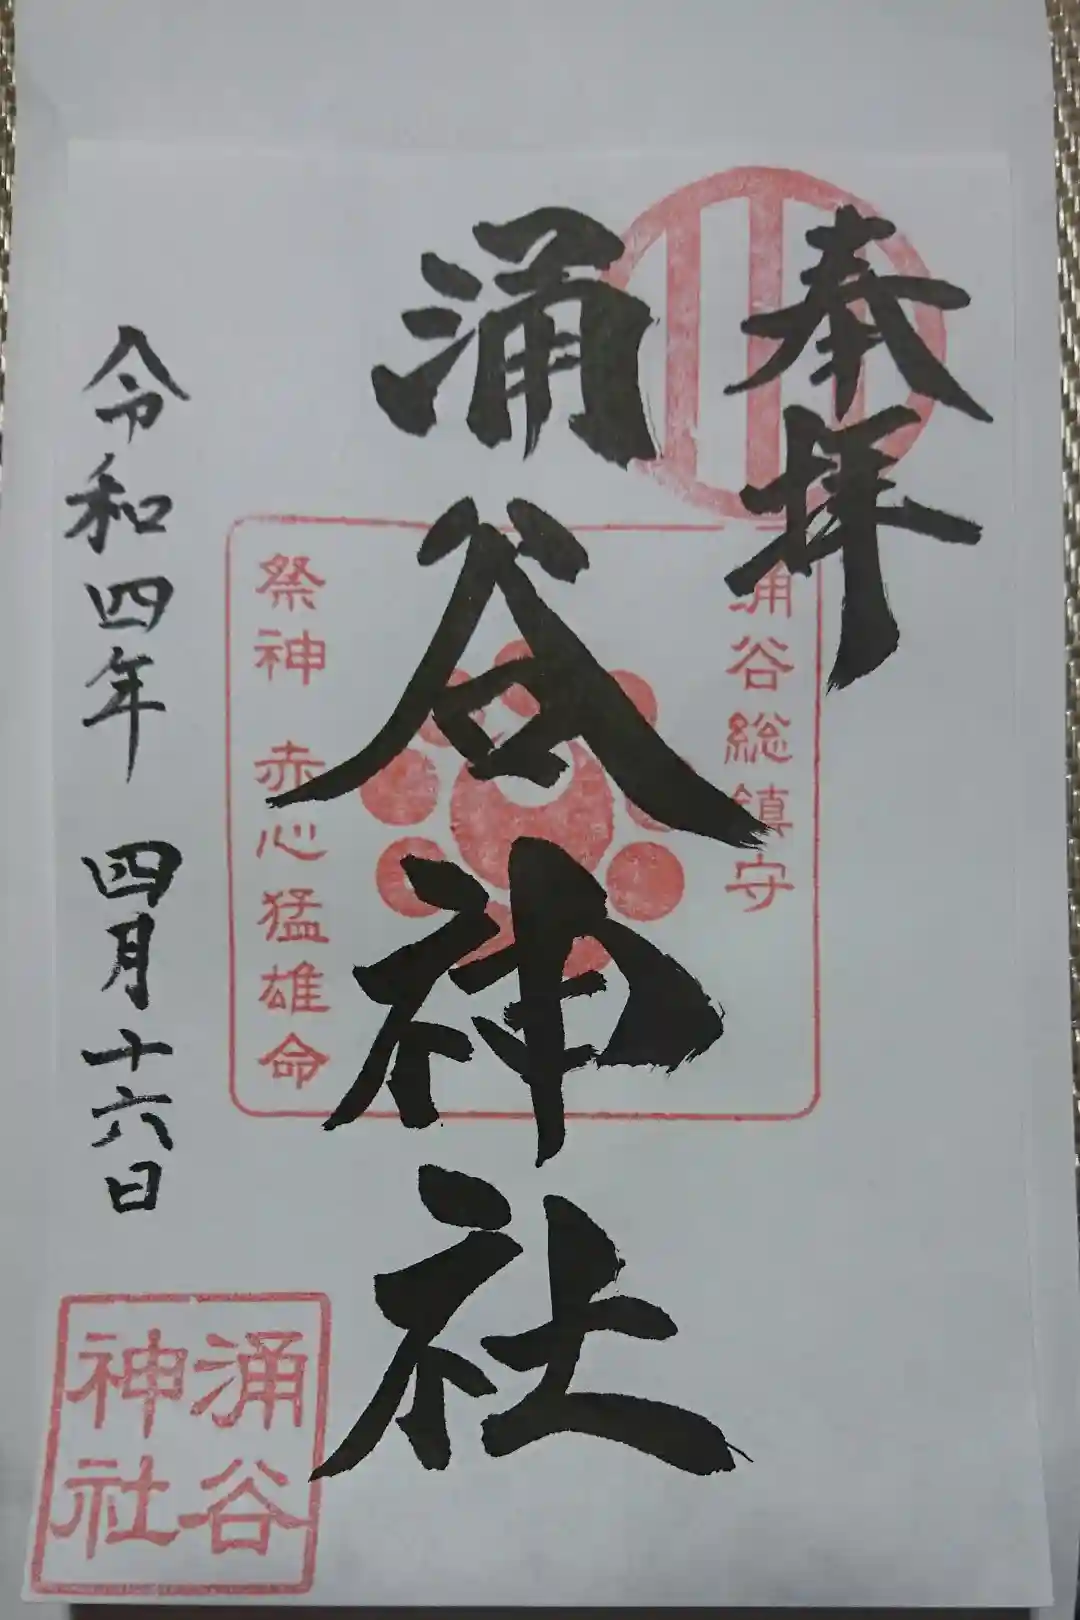 奉拝
涌谷総鎮守
涌谷神社
祭神 赤心猛雄命
令和四年 四月十六日
涌谷
神社